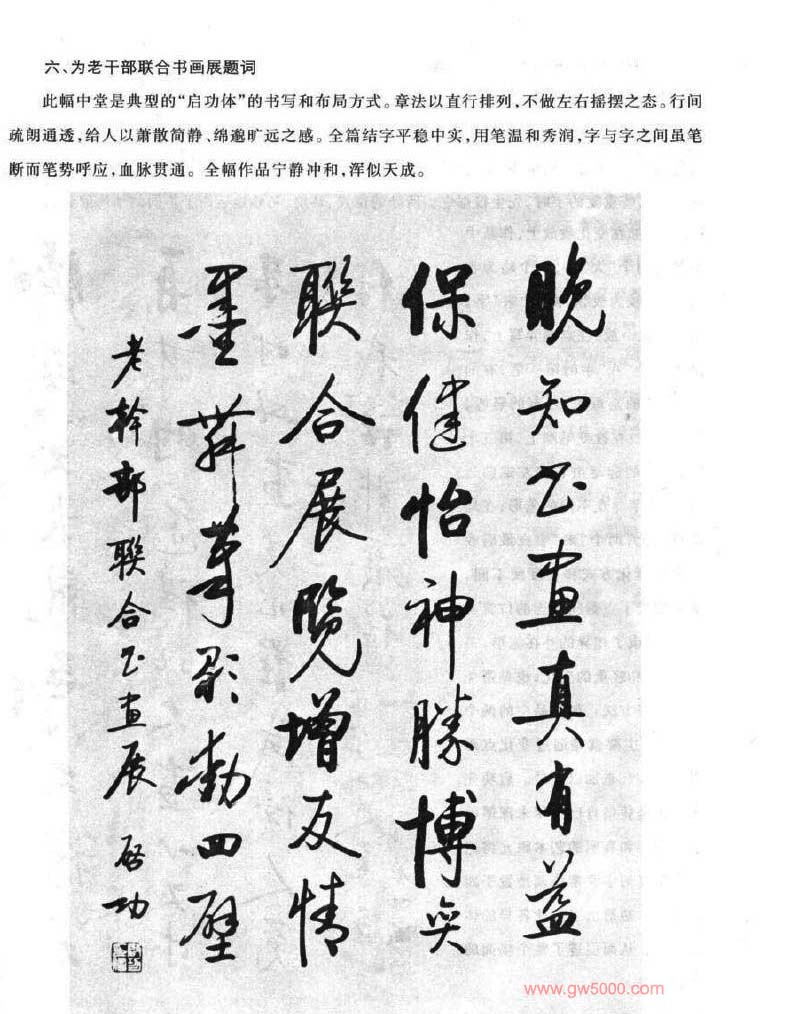 六、为老干部联合书画展题词
此幅中堂是典型的“启功体”的书写和布局方式。章法以直行排列,不做左右摇摆之态。行间
疏朗通透,给人以萧散简静、绵邈旷远之感。全篇结字平稳中实,用笔温和秀润,字与字之间虽笔
断而笔势呼应,血脉贯通。全幅作品宁静冲和,浑似天成。
晚知书画真有益
保健怡神胜博弈
联合展览增友情
墨舞笔歌动四壁
老幹部联合书画展 启功
www.gw5000.com